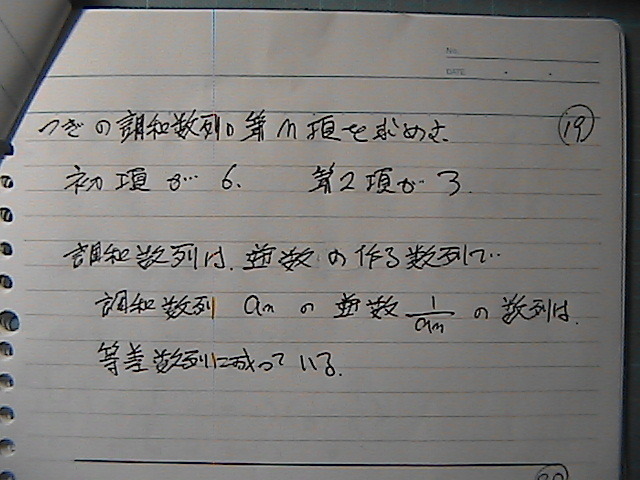 No.
DATE
つぎの調和数列の第n項を求めよ. ⑲
初項が 6. 第2項が 3.
調和数列は、逆数の作る数列で
調和数列 an の逆数 1/an の数列は.
等差数列に成っている.
20